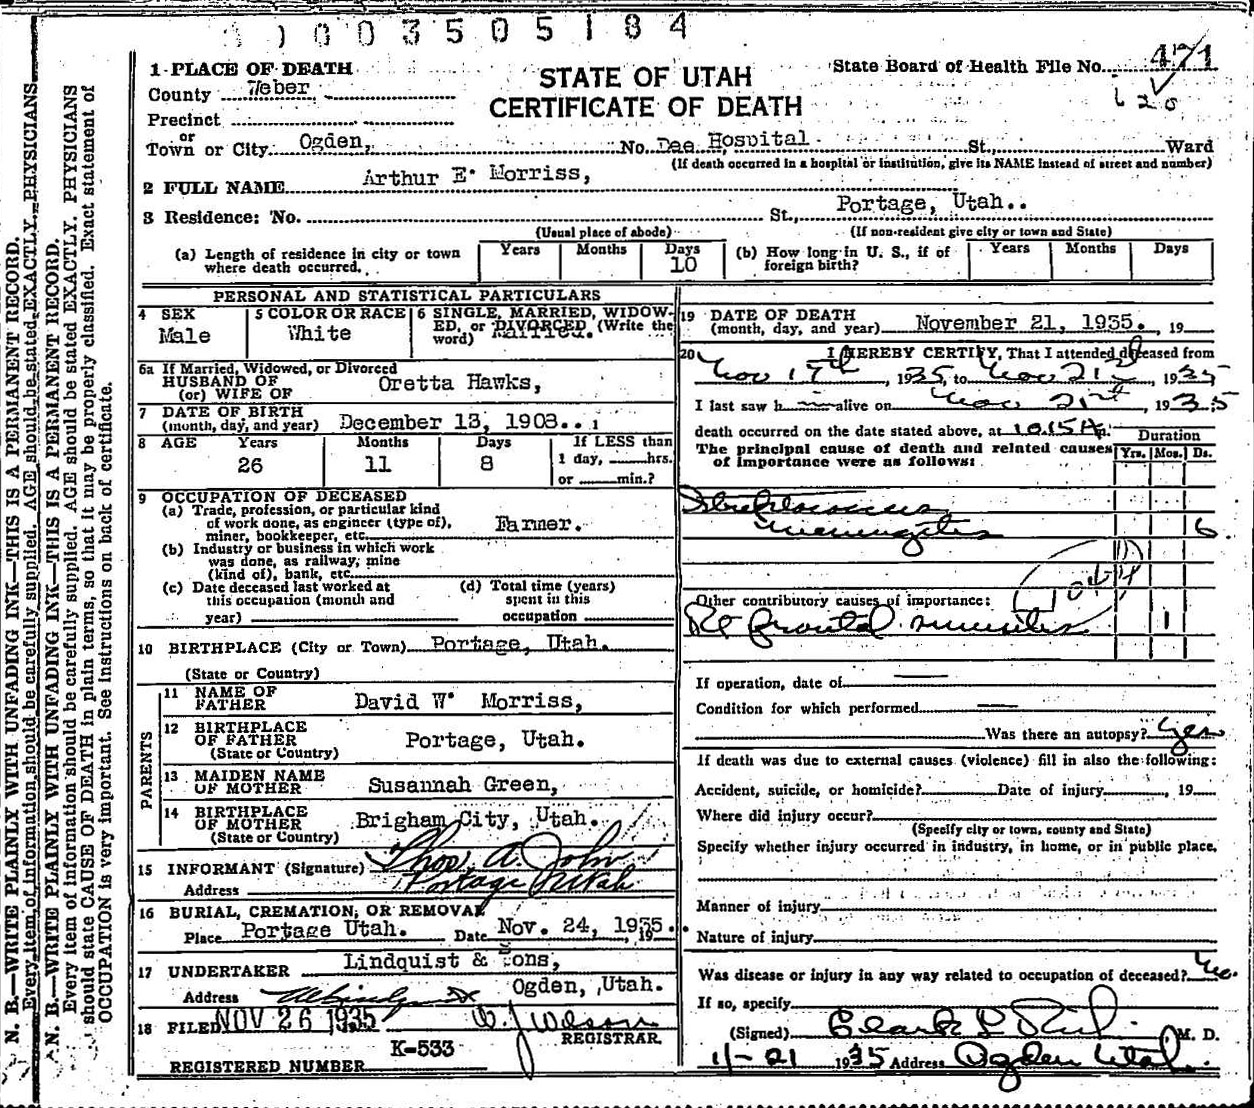 0003505184
1 PLACE OF DEATH
STATE OF UTAH
CERTIFICATE OF DEATH
State Board of Health File No. 471
620
County Weber
Precinct
or
Town or City Ogden, No. Dee Hospital St., Ward
(If death occurred in a hospital or institution, give its NAME instead of street and number)
2 FULL NAME Arthur E. Morriss,
3 Residence: No. St., Portage, Utah..
(Usual place of abode) (If non-resident give city or town and State)
(a) Length of residence in city or town where death occurred. Years Months Days 10
(b) How long in U. S., if of foreign birth? Years Months Days
PERSONAL AND STATISTICAL PARTICULARS
4 SEX Male
5 COLOR OR RACE White
6 SINGLE, MARRIED, WIDOWED, or DIVORCED (Write the word) Married.
6a If Married, Widowed, or Divorced
HUSBAND OF
(or) WIFE OF Oretta Hawks,
7 DATE OF BIRTH
(month, day, and year) December 13, 1908..
8 AGE Years 26 Months 11 Days 8 If LESS than 1 day, hrs. or min.?
9 OCCUPATION OF DECEASED
(a) Trade, profession, or particular kind of work done, as engineer (type of), miner, bookkeeper, etc. Farmer.
(b) Industry or business in which work was done, as railway, mine (kind of), bank, etc.
(c) Date deceased last worked at this occupation (month and year)
(d) Total time (years) spent in this occupation
10 BIRTHPLACE (City or Town) Portage, Utah.
(State or Country)
PARENTS
11 NAME OF FATHER David W. Morriss,
12 BIRTHPLACE OF FATHER Portage, Utah.
(State or Country)
13 MAIDEN NAME OF MOTHER Susannah Green,
14 BIRTHPLACE OF MOTHER Brigham City, Utah.
(State or Country)
15 INFORMANT (Signature) Thos. A. John
Address Portage Utah
16 BURIAL, CREMATION, OR REMOVAL
Place Portage Utah. Date Nov. 24, 1935. 19
17 UNDERTAKER Lindquist & Sons,
Address Ogden, Utah.
18 FILED NOV 26 1935 W. J. Wilson
REGISTRAR
K-533
REGISTERED NUMBER
19 DATE OF DEATH
(month, day, and year) November 21, 1935. , 19
20 I HEREBY CERTIFY, That I attended deceased from
Nov 17th, 1935, to Nov 21st, 1935
I last saw h im alive on Nov 21st, 1935
death occurred on the date stated above, at 10.15 A m.
The principal cause of death and related causes of importance were as follows:
Duration
Yrs. Mos. Ds.
Streptococcus
meningitis 6
Other contributory causes of importance:
Rt frontal sinusitis 1
If operation, date of
Condition for which performed
Was there an autopsy? Yes
If death was due to external causes (violence) fill in also the following:
Accident, suicide, or homicide? Date of injury , 19
Where did injury occur?
(Specify city or town, county and State)
Specify whether injury occurred in industry, in home, or in public place.
Manner of injury
Nature of injury
Was disease or injury in any way related to occupation of deceased? No.
If so, specify
(Signed) Clark L M. D.
11-21 1935 Address Ogden Utah.
N. B.—WRITE PLAINLY WITH UNFADING INK—THIS IS A PERMANENT RECORD.
Every item of information should be carefully supplied. AGE should be stated EXACTLY. PHYSICIANS
N. B.—WRITE PLAINLY WITH UNFADING INK—THIS IS A PERMANENT RECORD.
Every item of information should be carefully supplied. AGE should be stated EXACTLY. PHYSICIANS
should state CAUSE OF DEATH in plain terms, so that it may be properly classified. Exact statement of
OCCUPATION is very important. See instructions on back of certificate.